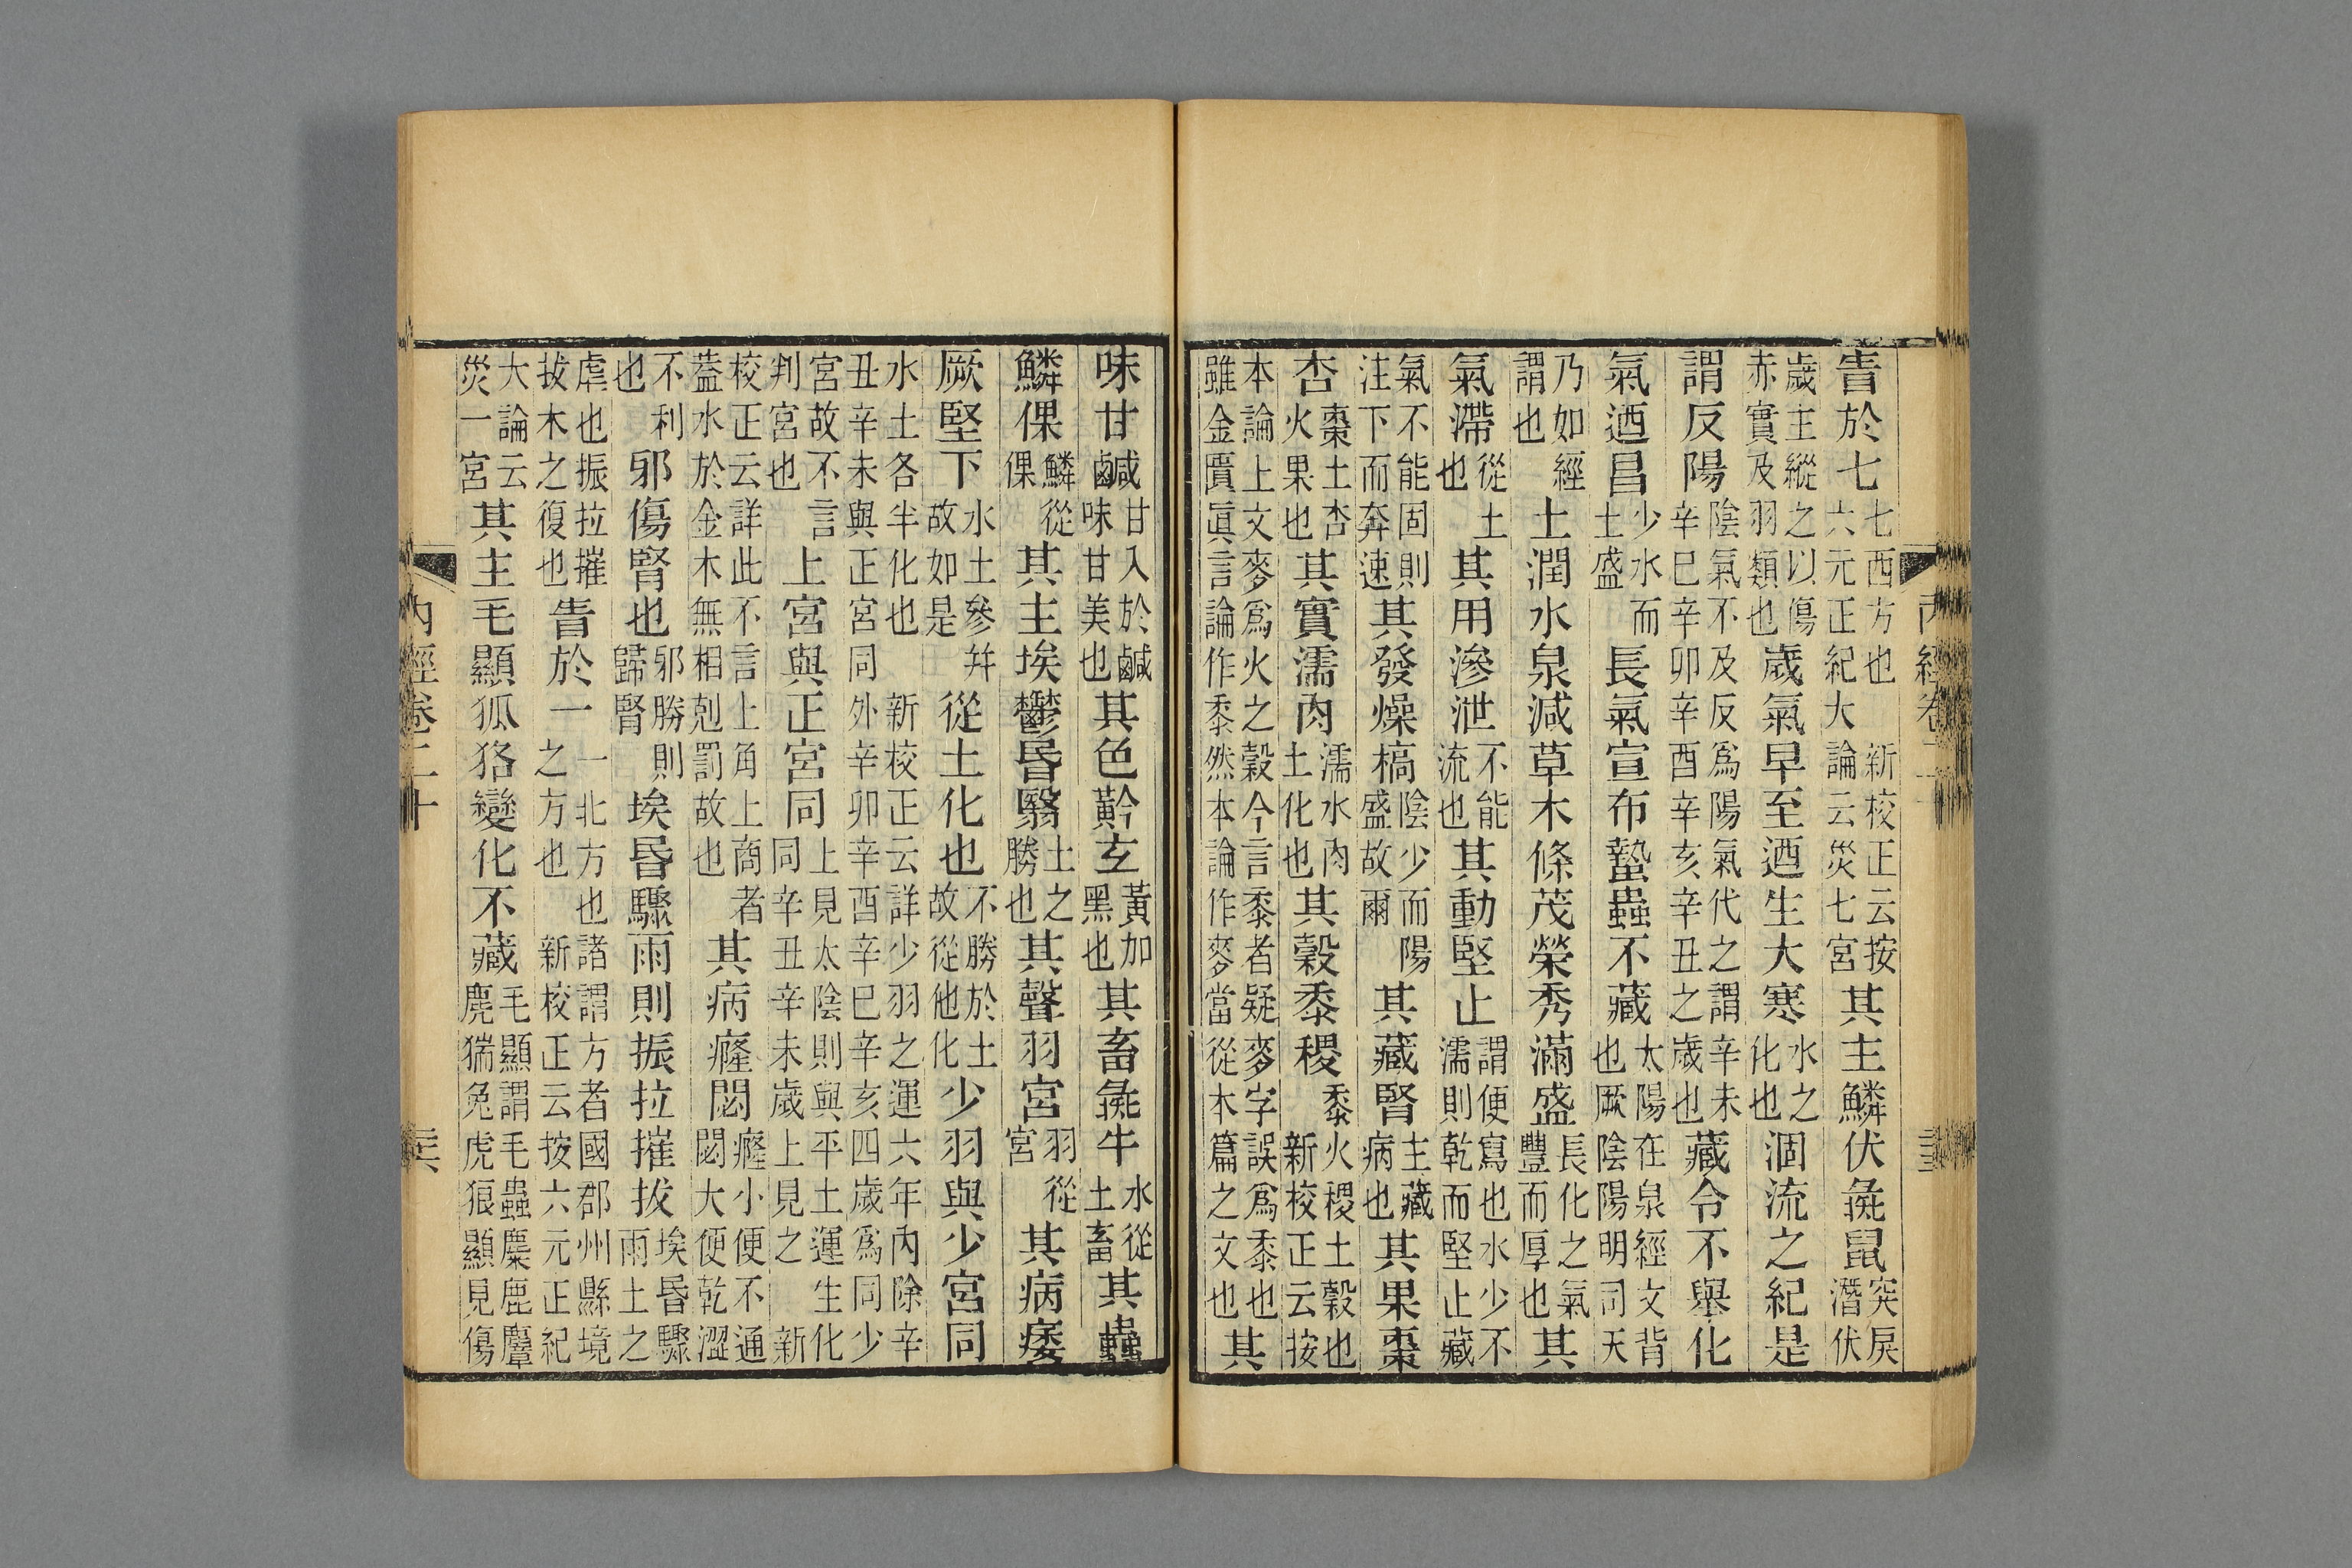 眚於七七西方也新校正云按六元正紀大論云災七宮其主鱗伏彘鼠突戾潛伏
歲主縱之以傷赤實及羽類也歲氣早至迺生大寒水之化也涸流之紀是
謂反陽陰氣不及反爲陽氣代之謂辛未辛巳辛卯辛酉辛亥辛丑之歲也藏令不舉化
氣迺昌少水而土盛長氣宣布蟄蟲不藏太陽在泉經文背也厥陰陽明司天
乃如經謂也土潤水泉減草木條茂榮秀滿盛長化之氣豐而厚也其
氣滯從土也其用滲泄不能流也其動堅止謂便寫也水少不濡則乾而堅止藏
氣不能固則注下而奔速其發燥槁陰少而陽盛故爾其藏腎主藏病也其果棗
杏棗土杏火果也其實濡肉濡水肉土化也其穀黍稷黍火稷土穀也新校正云按
本論上文麥爲火之穀今言黍者疑麥字誤爲黍也雖金匱眞言論作黍然本論作麥當從本篇之文也其
味甘鹹甘入於鹹味甘美也其色黅玄黃加黑也其畜彘牛水從土畜其蟲
鱗倮鱗從倮其主埃鬱昬翳土之勝也其聲羽宮羽從宮其病痿
厥堅下水土參幷故如是從土化也不勝於土故從他化少羽與少宮同
水土各半化也丑辛未與正宮同新校正云詳少羽之運六年內除辛外辛卯辛酉辛巳辛亥四歲爲同少
宮故不言判宮也上宮與正宮同上見太陰則與平土運生化同辛丑辛未歲上見之新
校正云詳此不言上角上商者蓋水於金木無相剋罰故也其病癃閟癃小便不通閟大便乾澀
不利也邪傷腎也邪勝則歸腎埃昬驟雨則振拉摧拔埃昬驟雨土之
虐也振拉摧拔木之復也眚於一一北方也諸謂方者國郡州縣境之方也新校正云按六元正紀
大論云災一宮其主毛顯狐狢變化不藏毛顯謂毛蟲麋鹿麞麂猯兔虎狼顯見傷
內經卷二十